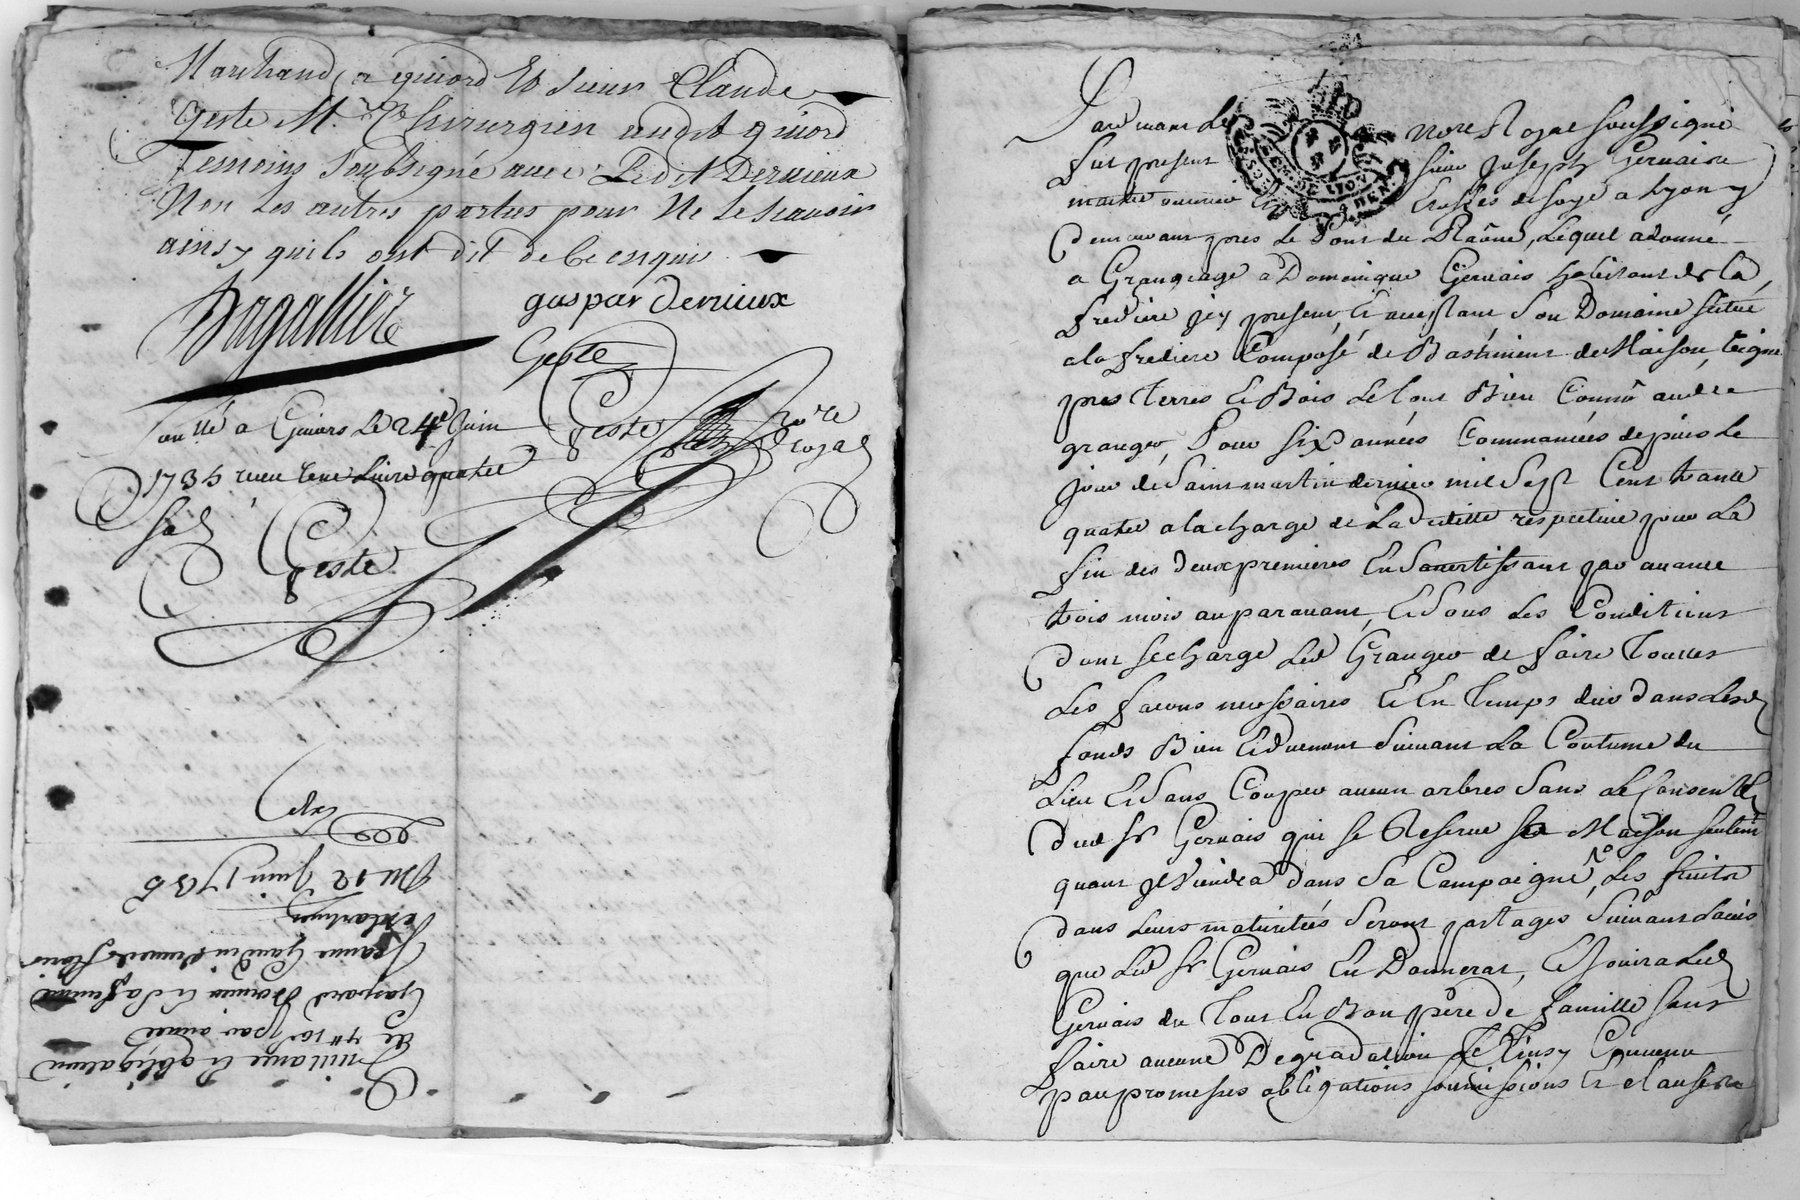 Marchand a givord Et sieur Claude
Geste M.re Chirurgien audit givord
temoins soubsigné avec Ledit Dervieux
Non Les autres parties pour Ne le scavoir
ainsy quils ont dit de ce enquis
Bagallier
gaspar dervieux
Geste
Geste
no.re
Royal
Conllé a Givors Le 24e Juin
1735 receu Livre
Geste
Quittance et obligation
de par année
Gaspard et sa femme
Jeanne
Du 12 Juin 1735
Par devant Le no.re Royal soussigné
fut present sieur Joseph Gervais
maitre ouvrier Etoffes de soye a Lyon y
demeurant pres le Pont du Rhône, Lequel a donné
a Grangeage a Dominique Gervais habitant de la
frediere icy present et acceptant son Domaine situé
a la frediere Composé de Bastiment de Maison, vigne
pres Terres et Bois Le tout Bien Connu audit
granger, Pour six années Commancées depuis Le
jour de Saint martin dernier mil Sept Cent trante
quatre a la charge de La ditte respective pour La
fin des deux premieres En S'avertissant par avance
trois mois auparavant, Et sous Les Conditions
dont se charge Led Granger de faire Toutes
Les facons necessaires Et En Temps du dans Lesd
fonds Bien Et duement suivant La Coutume du
Lieu Et sans Couper aucun arbres sans Le Consentem.t
dud Sr Gervais qui se Reserve sa Maison seulem.t
quant Il viendra dans Sa Campaigne, Les fruits
dans Leurs maturités seront partagés suivant
que Led Sr Gervais En Donnerat, Et Jouira Led
Gervais du Tout En Bon pere de famille sans
faire aucune Degradation Et Ainsy Convenu
par promesses obligations soumissions Et clauses